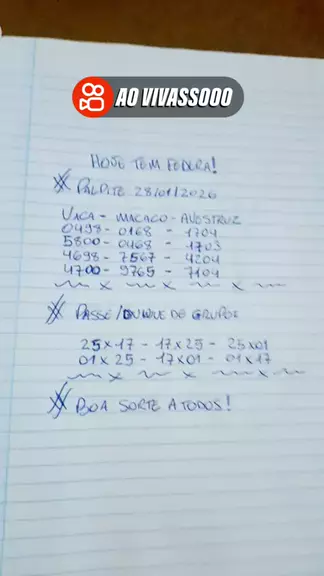 AO VIVASSOOO
HOJE TEM FEDERAL!
PALPITE 28/01/2026
VACA - MACACO - AVESTRUZ
0498 - 0168 - 1704
5800 - 0468 - 1703
4698 - 7567 - 4204
4700 - 9765 - 7104
PASSE/DUQUE DE GRUPO:
25x17 - 17x25 - 25x01
01x25 - 17x01 - 01x17
BOA SORTE A TODOS!